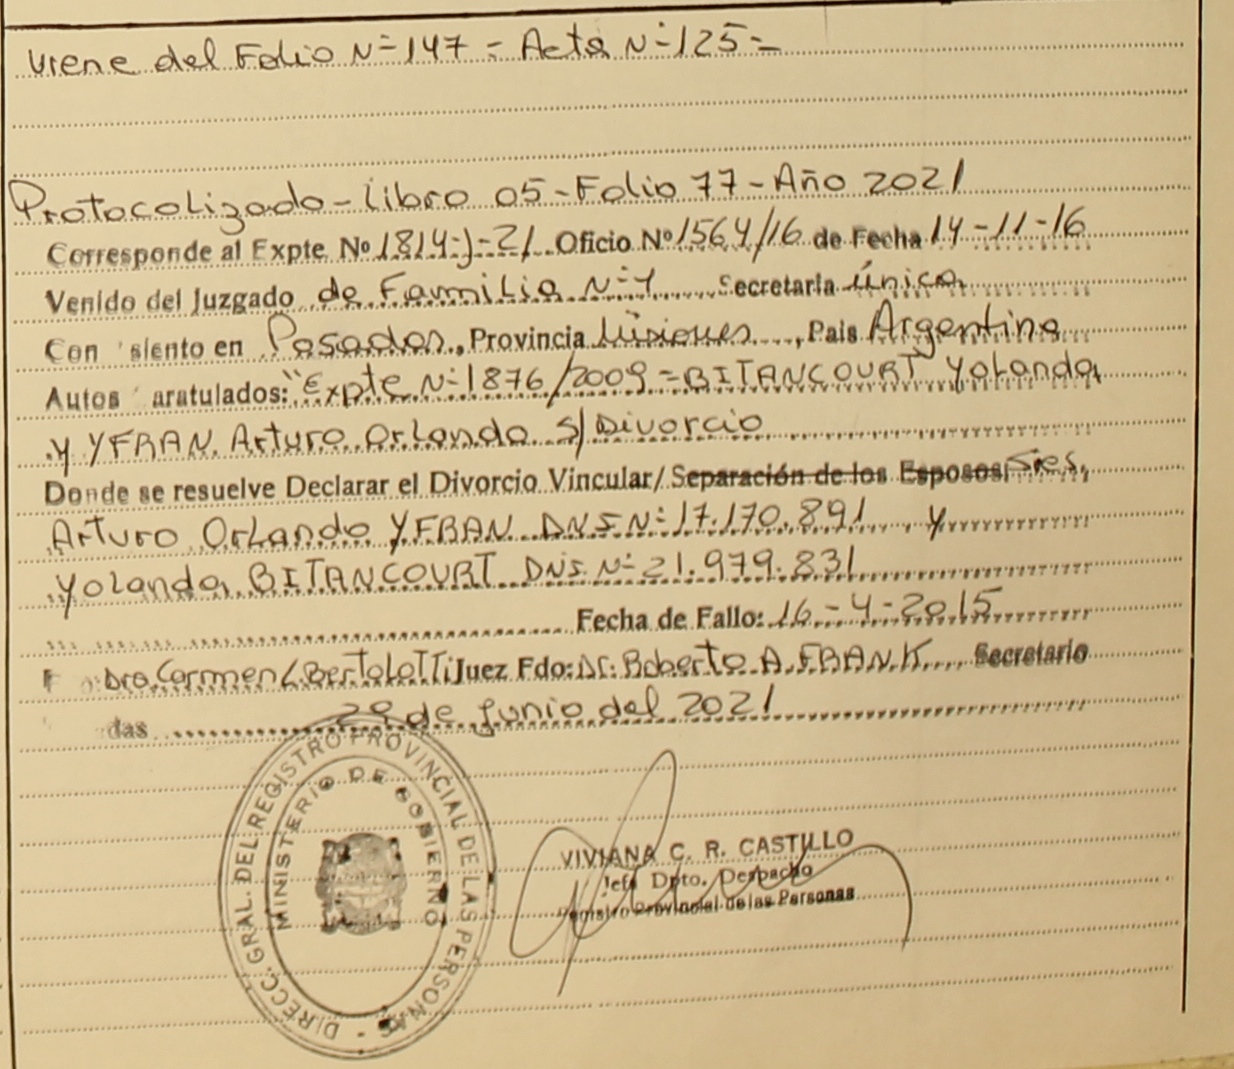 Viene del Folio Nº 147 = Acta Nº 125 =
Protocolizado - Libro 05 - Folio 77 - Año 2021
Corresponde al Expte Nº 1814-J-21 Oficio Nº 1564/16 de Fecha 14-11-16
Venido del Juzgado de Familia Nº 1 Secretaria Única
Con siento en Posadas, Provincia Misiones, Pais Argentina
Autos aratulados: "Expte Nº 1876/2009 = BITANCOURT Yolanda
y YFRAN Arturo Orlando S/ Divorcio
Donde se resuelve Declarar el Divorcio Vincular/ Separación de los Esposos: Sres.
Arturo Orlando YFRAN DNI Nº 17.170.891 y
Yolanda BITANCOURT DNI Nº 21.979.831
Fecha de Fallo: 16-4-2015
Dra. Carmen L. Bertolotti Juez Fdo: Dr. Roberto A. FRANK Secretario
das 29 de Junio del 2021
DIRECC. GRAL. DEL REGISTRO PROVINCIAL DE LAS PERSONAS -
MINISTERIO DE GOBIERNO
VIVIANA C. R. CASTILLO
Jefa Dpto. Despacho
Registro Provincial de las Personas